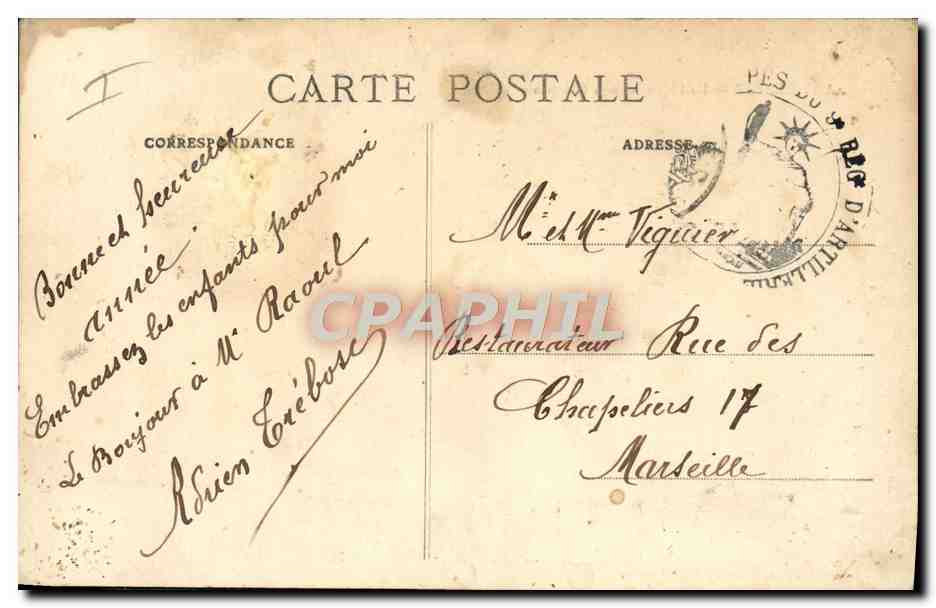 I
CARTE POSTALE
CORRESPONDANCE
Bonne et heureuse
année.
Embrassez les enfants pour moi
Le Bonjour à Mr Raoul
Adrien Trébosc
ADRESSE
PES DU 9e REGt D'ARTILLERIE
Mr et Mme Viguier
Restaurateur Rue des
Chapeliers 17
Marseille
CPAPHIL